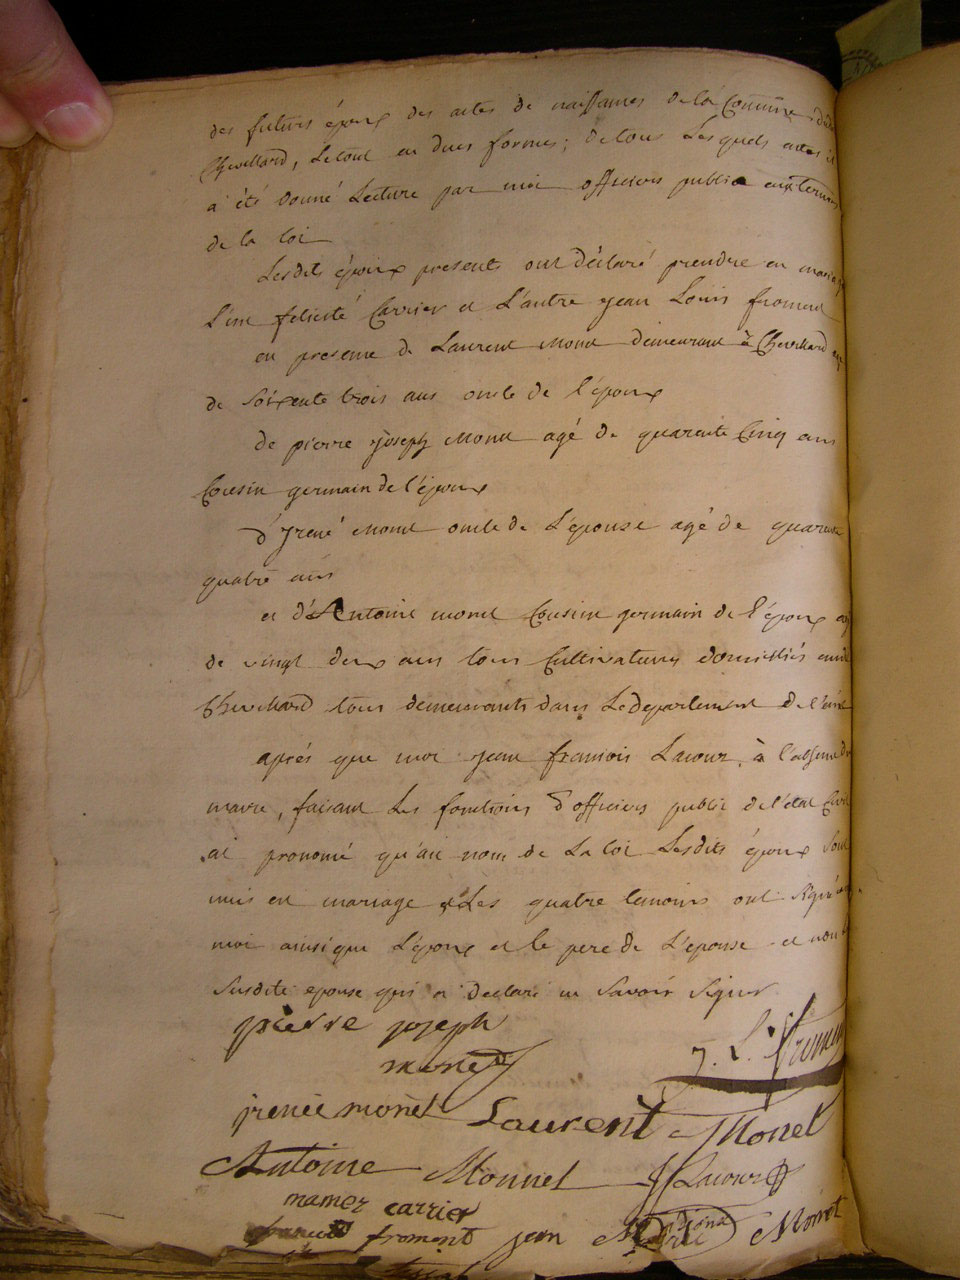 des futurs époux des actes de naissances de la Commune dudit
Chevillard, Le tout en dues formes; de tous Lesquels actes il
a été donné Lecture par moi officiers public aux termes
de la loi
Lesdits époux presents ont déclaré prendre en mariage
L'un felicité Carrier et L'autre jean Louis froment
en presence de Laurent Monet demeurant à Chevillard agé
de soixente trois ans oncle de l'époux
de pierre joseph Monet agé de quarente Cinq ans
Cousin germain de l'époux
d'jrené Monet oncle de L'épouse agé de quarente
quatre ans
et d'Antoine monet Cousin germain de l'époux agé
de vingt deux ans tous Cultivateurs domiciliés audit
Chevillard tous demeurants dans Le departement de l'ain
après que moi jean francois Lacour, à l'absence du
maire, faisant Les fonctions d'officiers public de l'état Civil
ai prononcé qu'au nom de La loi Lesdits époux sont
unis en mariage & Les quatre temoins ont signé avec
moi ainsi que L'époux et le pere de L'epouse et non la
susdite epouse qui a declaré ne savoir signer
pierre joseph
monet
J. L. froment
jrenée monet Laurent Monet
Antoine Monnet JF Lacour
mamer carrier
froment jean Monet